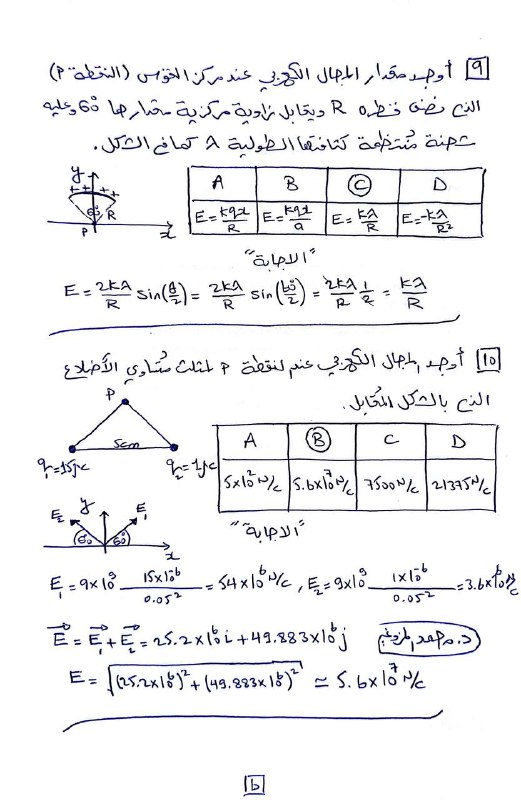 9 أوجد مقدار المجال الكهربي عند مركز القوس (النقطة P)
الذي نصف قطره R ويقابل زاوية مركزية مقدارها 60° وعليه
شحنة منتظمة كثافتها الطولية λ كما في الشكل.
y
++ ++
60° R
P x
A B C D
E=kqx/R E=kqx/a E=kλ/R E=-kλ/R²
"الاجابة"
E = 2kλ/R sin(θ/2) = 2kλ/R sin(60°/2) = 2kλ/R 1/2 = kλ/R
10 أوجد المجال الكهربي عند النقطة P لمثلث متساوي الأضلاع
الذي بالشكل المقابل.
P
5cm
q₁=15μc q₂=1μc
A B C D
5x10² N/c 5.6x10⁷ N/c 7500 N/c 21375 N/c
"الاجابة"
E₂ y E₁
60 60° x
E₁ = 9x10⁹ 15x10⁻⁶/0.05² = 54x10⁶ N/c , E₂ = 9x10⁹ 1x10⁻⁶/0.05² = 3.6x10⁶ N/c
E = E₁ + E₂ = 25.2x10⁶ i + 49.883x10⁶ j
E = √(25.2x10⁶)² + (49.883x10⁶)² ≃ 5.6x10⁷ N/c
6